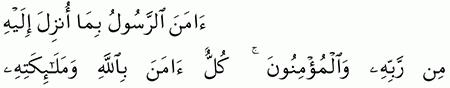 ءَامَنَ ٱلرَّسُولُ بِمَآ أُنزِلَ إِلَيْهِ
مِن رَّبِّهِۦ وَٱلْمُؤْمِنُونَ ۚ كُلٌّ ءَامَنَ بِٱللَّهِ وَمَلَـٰٓئِكَتِهِۦ